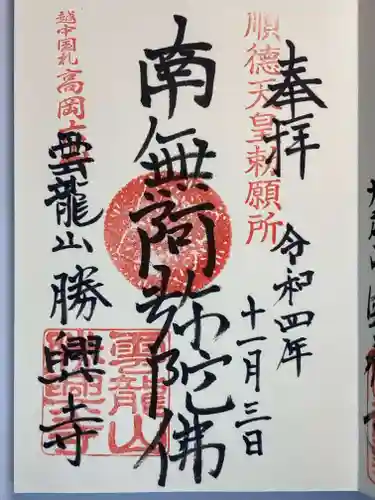 奉拝
順德天皇勅願所
令和四年
十一月三日
南無阿弥陀佛
越中国札
高岡
雲龍山
勝興寺
雲龍山
勝興寺